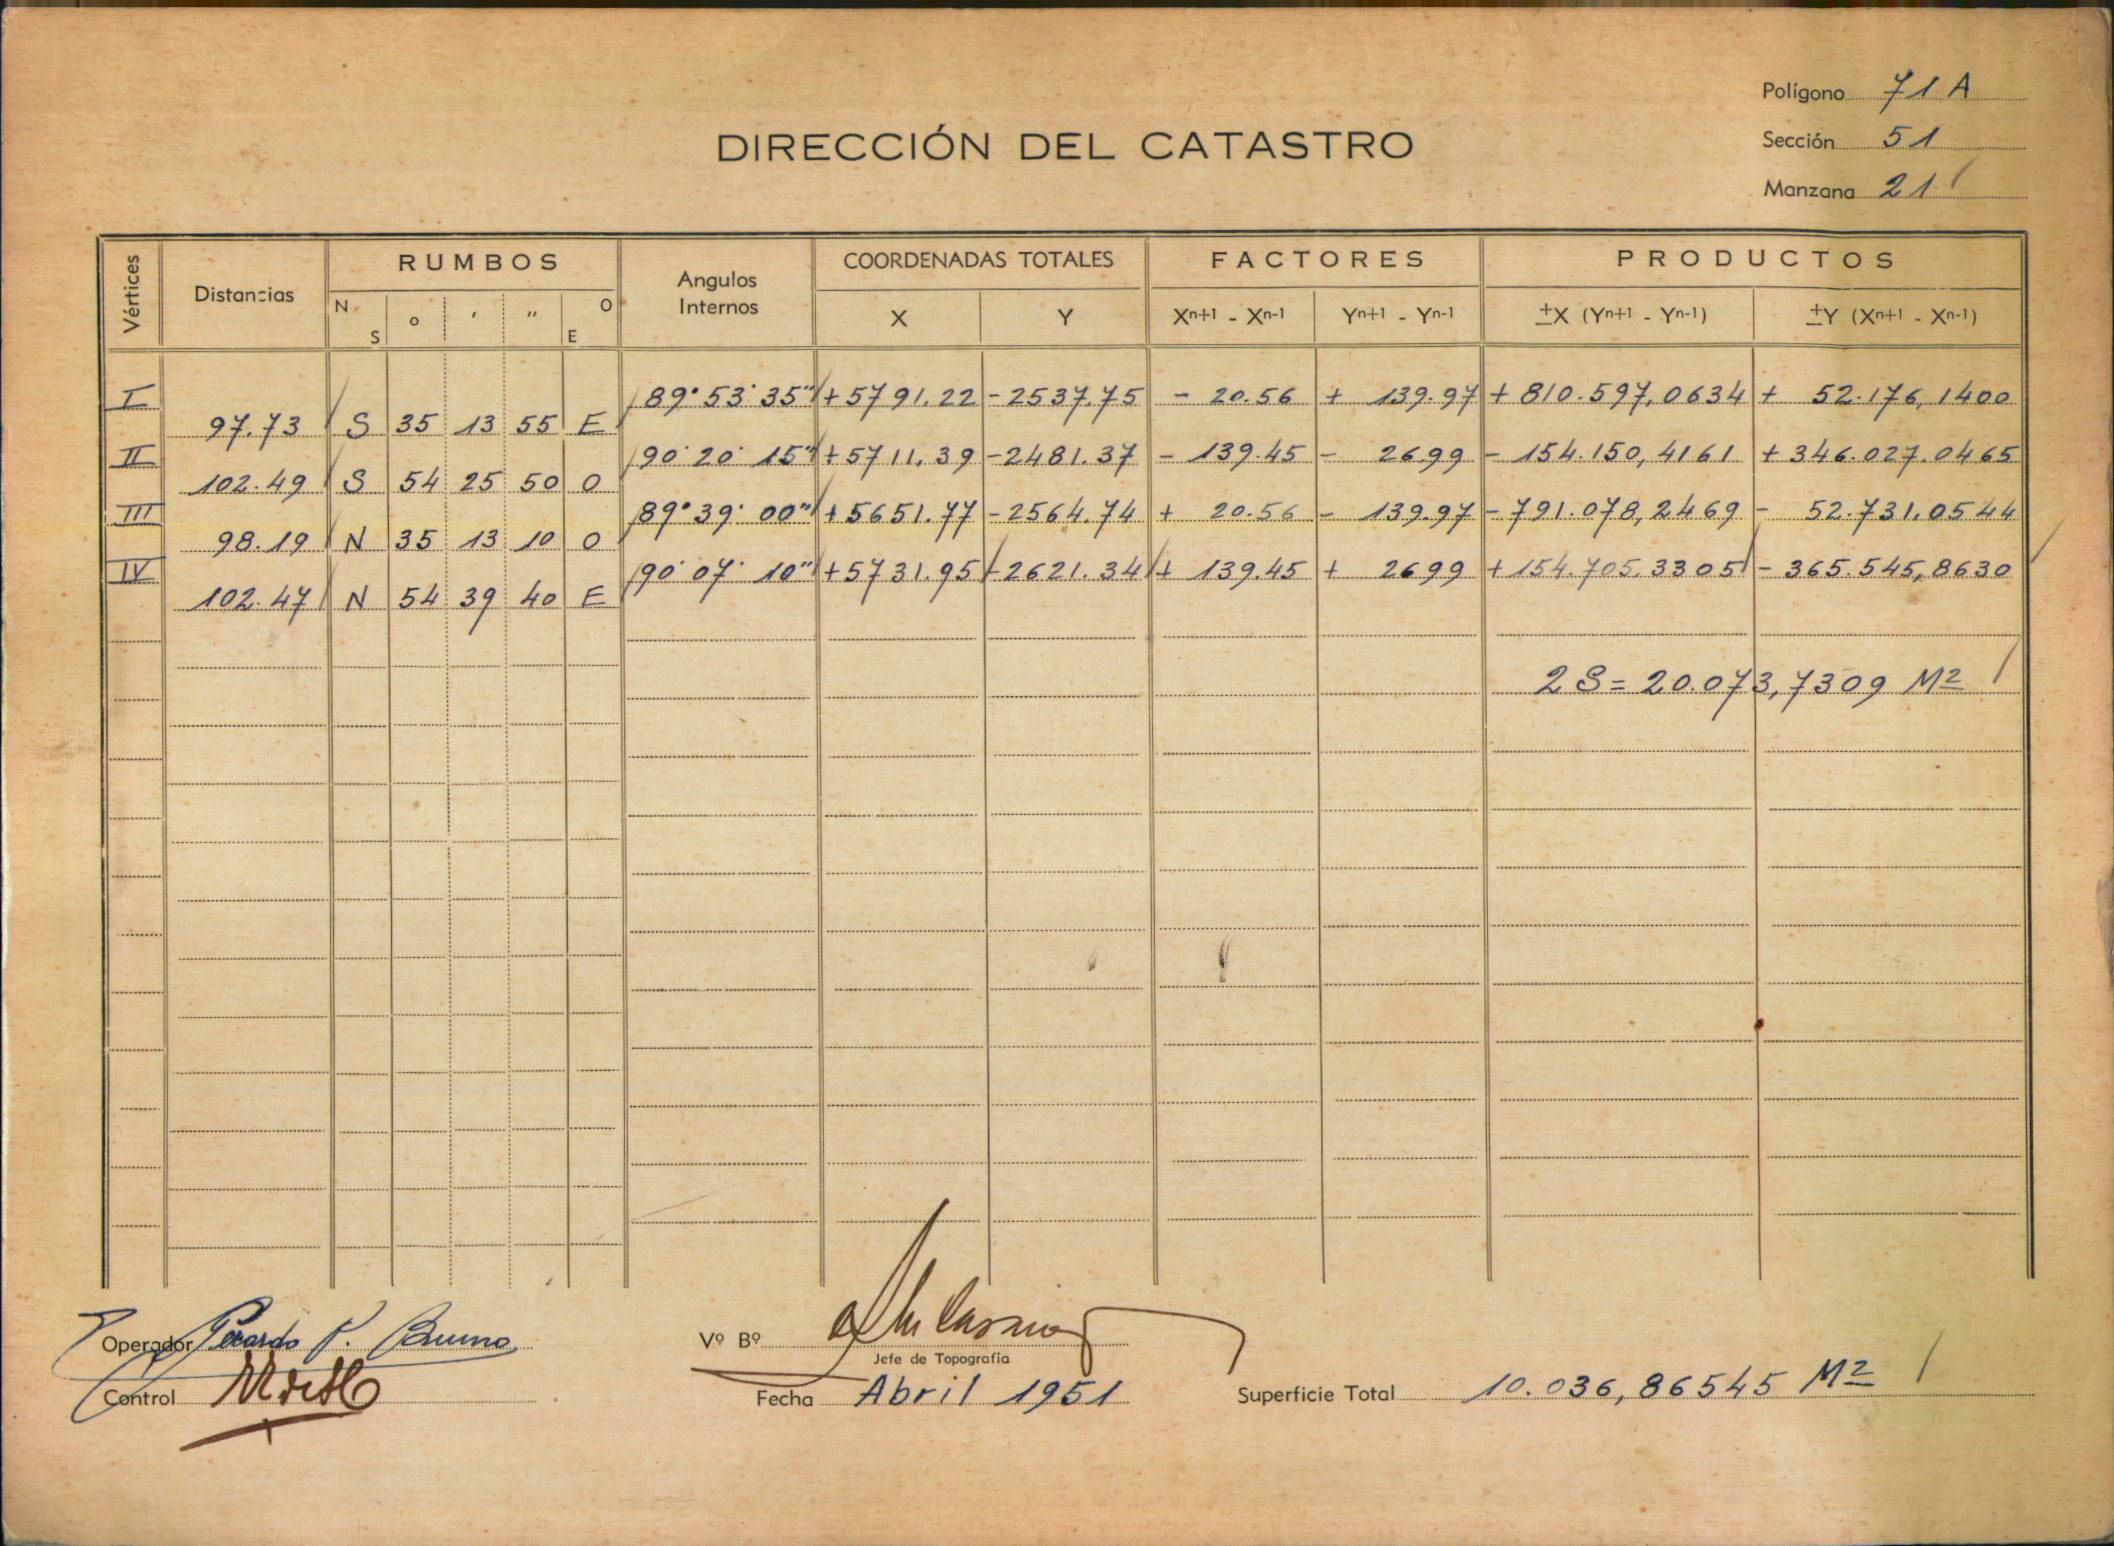 Polígono 71 A
DIRECCIÓN DEL CATASTRO
Sección 51
Manzana 21
Vértices Distancias RUMBOS Angulos Internos COORDENADAS TOTALES FACTORES PRODUCTOS
N S o ' " O E X Y Xn+1 - Xn-1 Yn+1 - Yn-1 ±X (Yn+1 - Yn-1) ±Y (Xn+1 - Xn-1)
I 89° 53' 35" +5791.22 -2537.75 - 20.56 + 139.97 + 810.597,0634 + 52.176,1400
97.73 S 35 13 55 E
II 90° 20' 15" +5711.39 -2481.37 - 139.45 - 2699 - 154.150,4161 + 346.027.0465
102.49 S 54 25 50 O
III 89° 39' 00" +5651.77 -2564.74 + 20.56 - 139.97 - 791.078,2469 - 52.731.0544
98.19 N 35 13 10 O
IV 90° 07' 10" +5731.95 -2621.34 + 139.45 + 2699 + 154.705.3305 - 365.545,8630
102.47 N 54 39 40 E
2 S = 20.073,7309 M2
Operador Gerardo P. Bruno
Vº Bº
Jefe de Topografía
Control
Fecha Abril 1951
Superficie Total 10.036,86545 M2